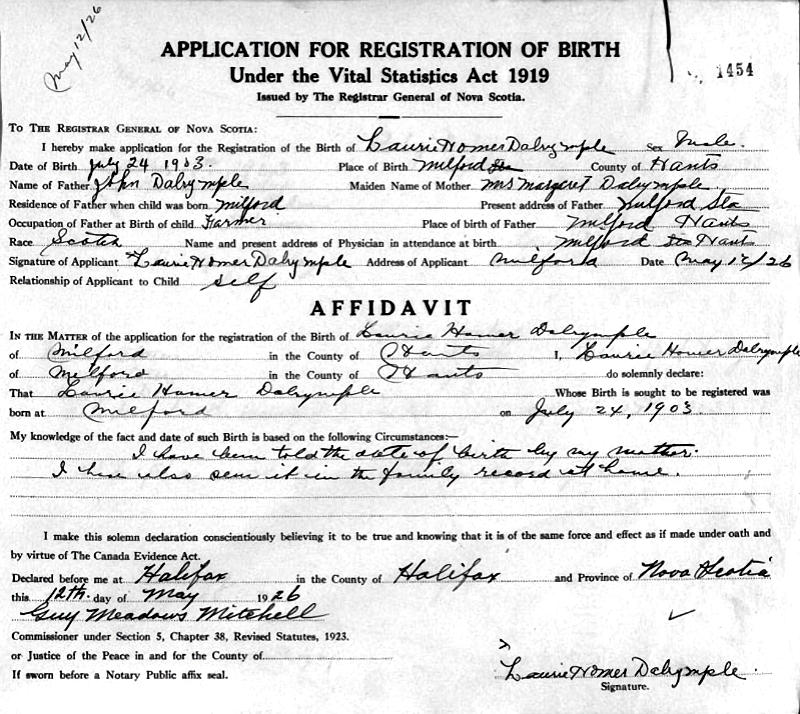 May 12/26
APPLICATION FOR REGISTRATION OF BIRTH
Under the Vital Statistics Act 1919
1454
Issued by The Registrar General of Nova Scotia.
TO THE REGISTRAR GENERAL OF NOVA SCOTIA:
I hereby make application for the Registration of the Birth of Laurie Homer Dalrymple Sex Male.
Date of Birth July 24 1903. Place of Birth Milford Sta County of Hants
Name of Father John Dalrymple Maiden Name of Mother Mrs Margaret Dalymple
Residence of Father when child was born Milford Present address of Father Milford Sta
Occupation of Father at Birth of child Farmer Place of birth of Father Milford Hants
Race Scotch Name and present address of Physician in attendance at birth Milford Sta Hants
Signature of Applicant Laurie Homer Dalrymple Address of Applicant Milford Date May 12/26
Relationship of Applicant to Child self
AFFIDAVIT
IN THE MATTER of the application for the registration of the Birth of Laurie Homer Dalrymple
of Milford in the County of Hants I, Laurie Homer Dalrymple
of Milford in the County of Hants do solemnly declare:
That Laurie Homer Dalrymple Whose Birth is sought to be registered was
born at Milford on July 24, 1903
My knowledge of the fact and date of such Birth is based on the following Circumstances:—
I have been told the date of birth by my mother.
I have also seen it in the family record at home.
I make this solemn declaration conscientiously believing it to be true and knowing that it is of the same force and effect as if made under oath and
by virtue of The Canada Evidence Act.
Declared before me at Halifax in the County of Halifax and Province of Nova Scotia
this 12th. day of May 1926
Guy Meadows Mitchell
Commissioner under Section 5, Chapter 38, Revised Statutes, 1923.
or Justice of the Peace in and for the County of
If sworn before a Notary Public affix seal.
Laurie Homer Dalrymple.
Signature.